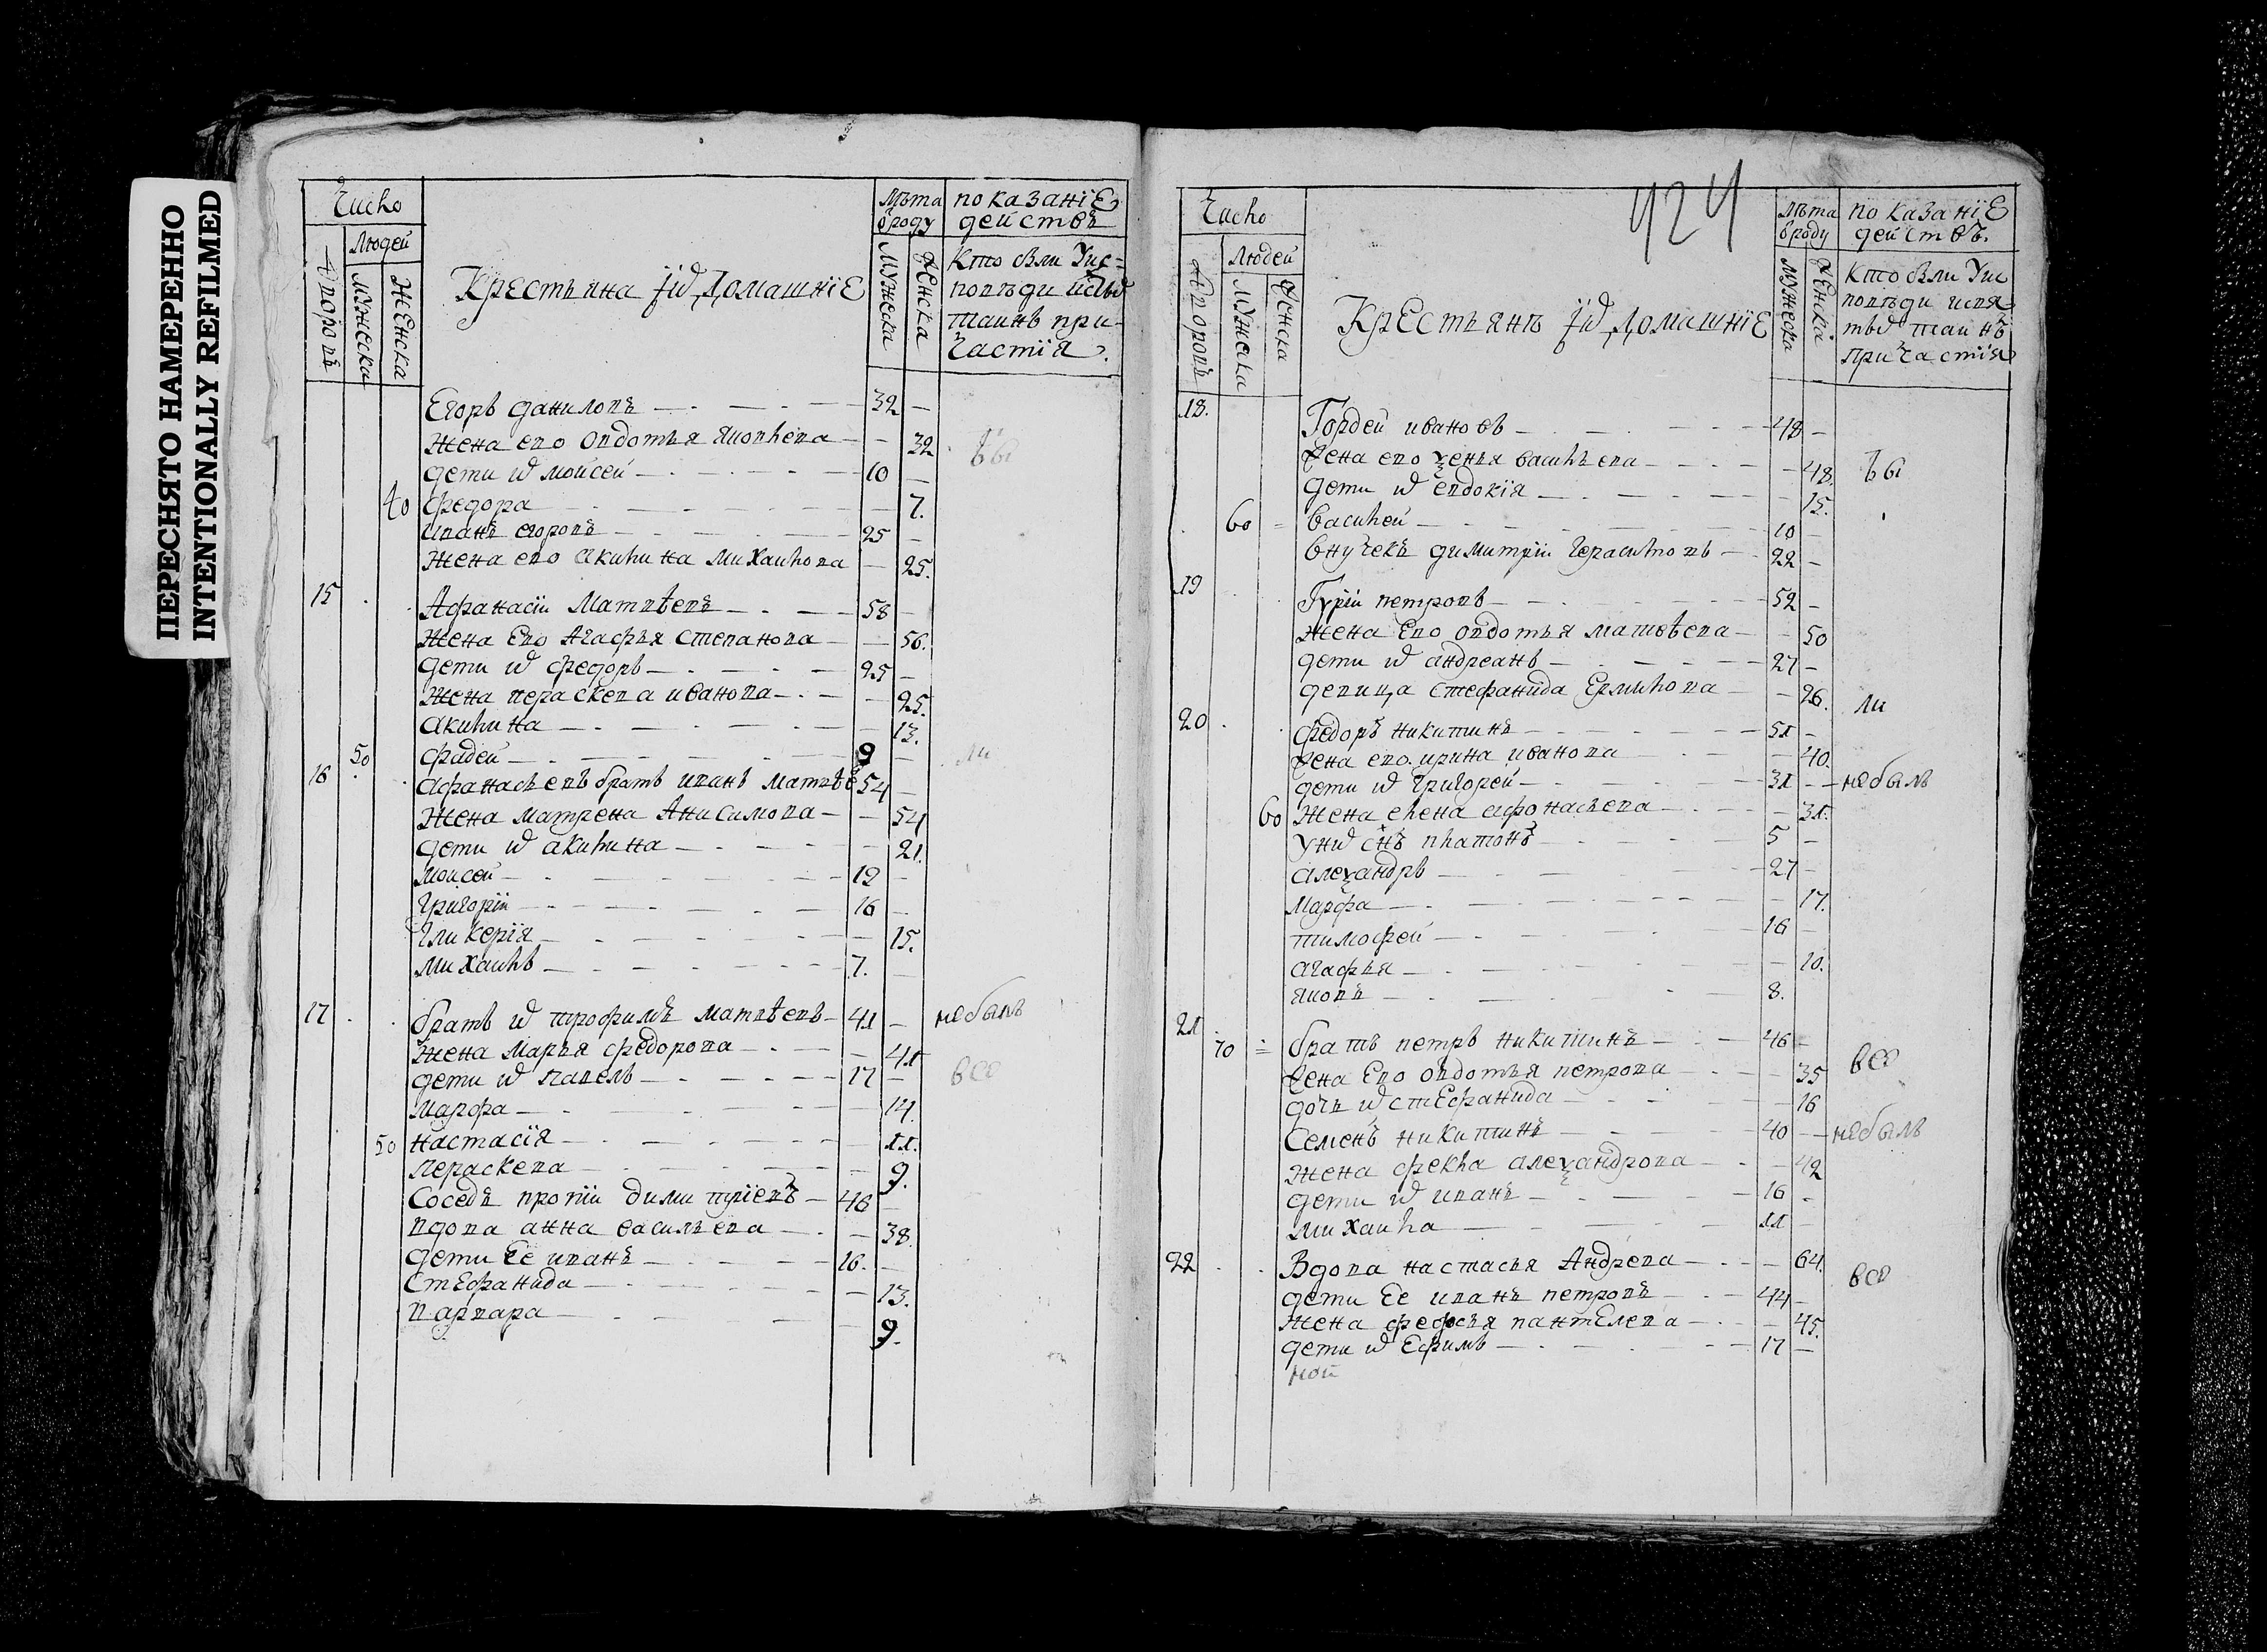 ПЕРЕСНЯТО НАМЕРЕННО
INTENTIONALLY REFILMED
Число
Людей
дворовъ
мужеска
женска
Крестьяна їихъ домашнїе
Лѣта
ѿроду
мужеска
женска
показанїе
действъ
Кто были Уис-
поведи исвѧ
таинъ при-
частїя.
Егоръ даниловъ 32
Жена его овдотья яковлева 32
дети ихъ моисей 10
40 федора 7.
иванъ егоровъ 25
Жена его акилина михаилова 25.
вы
15 Афанасїи Матвѣевъ 58
Жена Его Агафья степанова 56.
дети ихъ федоръ 25
Жена параскева иванова 25.
акилина 13.
50 фадей 9
ли
16 афанасьевъ братъ иванъ матвѣе 54
Жена матрена Анисимова 54
дети ихъ акилина 21.
моисей 19
григорїи 16
гликерїя 15.
михаилъ 7.
17 братъ ихъ трофимъ матвѣевъ 41 небылъ
Жена Марья федорова 41
дети ихъ павелъ 17 всѣ
марфа 14.
50 настасїя 11.
Параскева 9.
Соседъ
димитрїевъ 46
вдова анна васильева 38.
дети Ее иванъ 16.
Стефанида 13.
варвара 9.
424
Число
Людей
дворовъ
мужеска
женска
Крестьянъ їихъ домашнїе
Лѣта
ѿроду
мужеска
женска
показанїе
действъ.
Кто были Уис
поведи исвѧ
тыхъ таинъ
причастїя
18. Гордей ивановъ 48
Жена его ѯенья васильева 48.
дети ихъ евдокїя 15.
60 василей 10
внучекъ димитрїи герасимовъ 22
вы
19 Гурїи петровъ 52
Жена Его овдотья матвѣева 50
дети ихъ андреанъ 27
девица стефанида Ермилова 26.
ли
20 федоръ никитинъ 51
Жена его ирина иванова 40.
дети ихъ григорей 31 небылъ
60 Жена елена афонасьева 31.
уних снъ платонъ 5
алеѯандръ 27
Марфа 17.
тимофей 16
агафья 10.
яковъ 8.
21
70 братъ петръ никитинъ 46
Жена Его овдотья петрова 35
дочь ихъ стефанида 16
всѣ
Семенъ никитинъ 40 небылъ
Жена фекла алеѯандрова 42
дети ихъ иванъ 16
михаила 11
22 Вдова настасья Андрева 64.
дети Ее иванъ петровъ 44
Жена федосья пантелева 45.
дети ихъ Ефимъ 17
всѣ